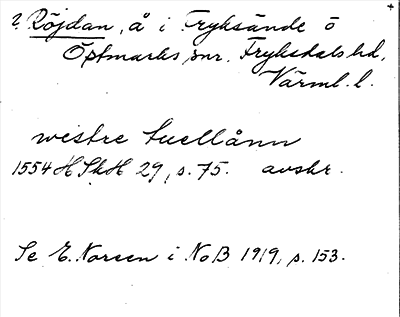 2. Röjdan, å i Fryksände o
Östmarks snr, Fryksdals hd,
Värml. l.
westre Luellånn
1554 HSkH 29, s. 75. avskr.
Se E. Noreen i NoB 1919, s. 153.